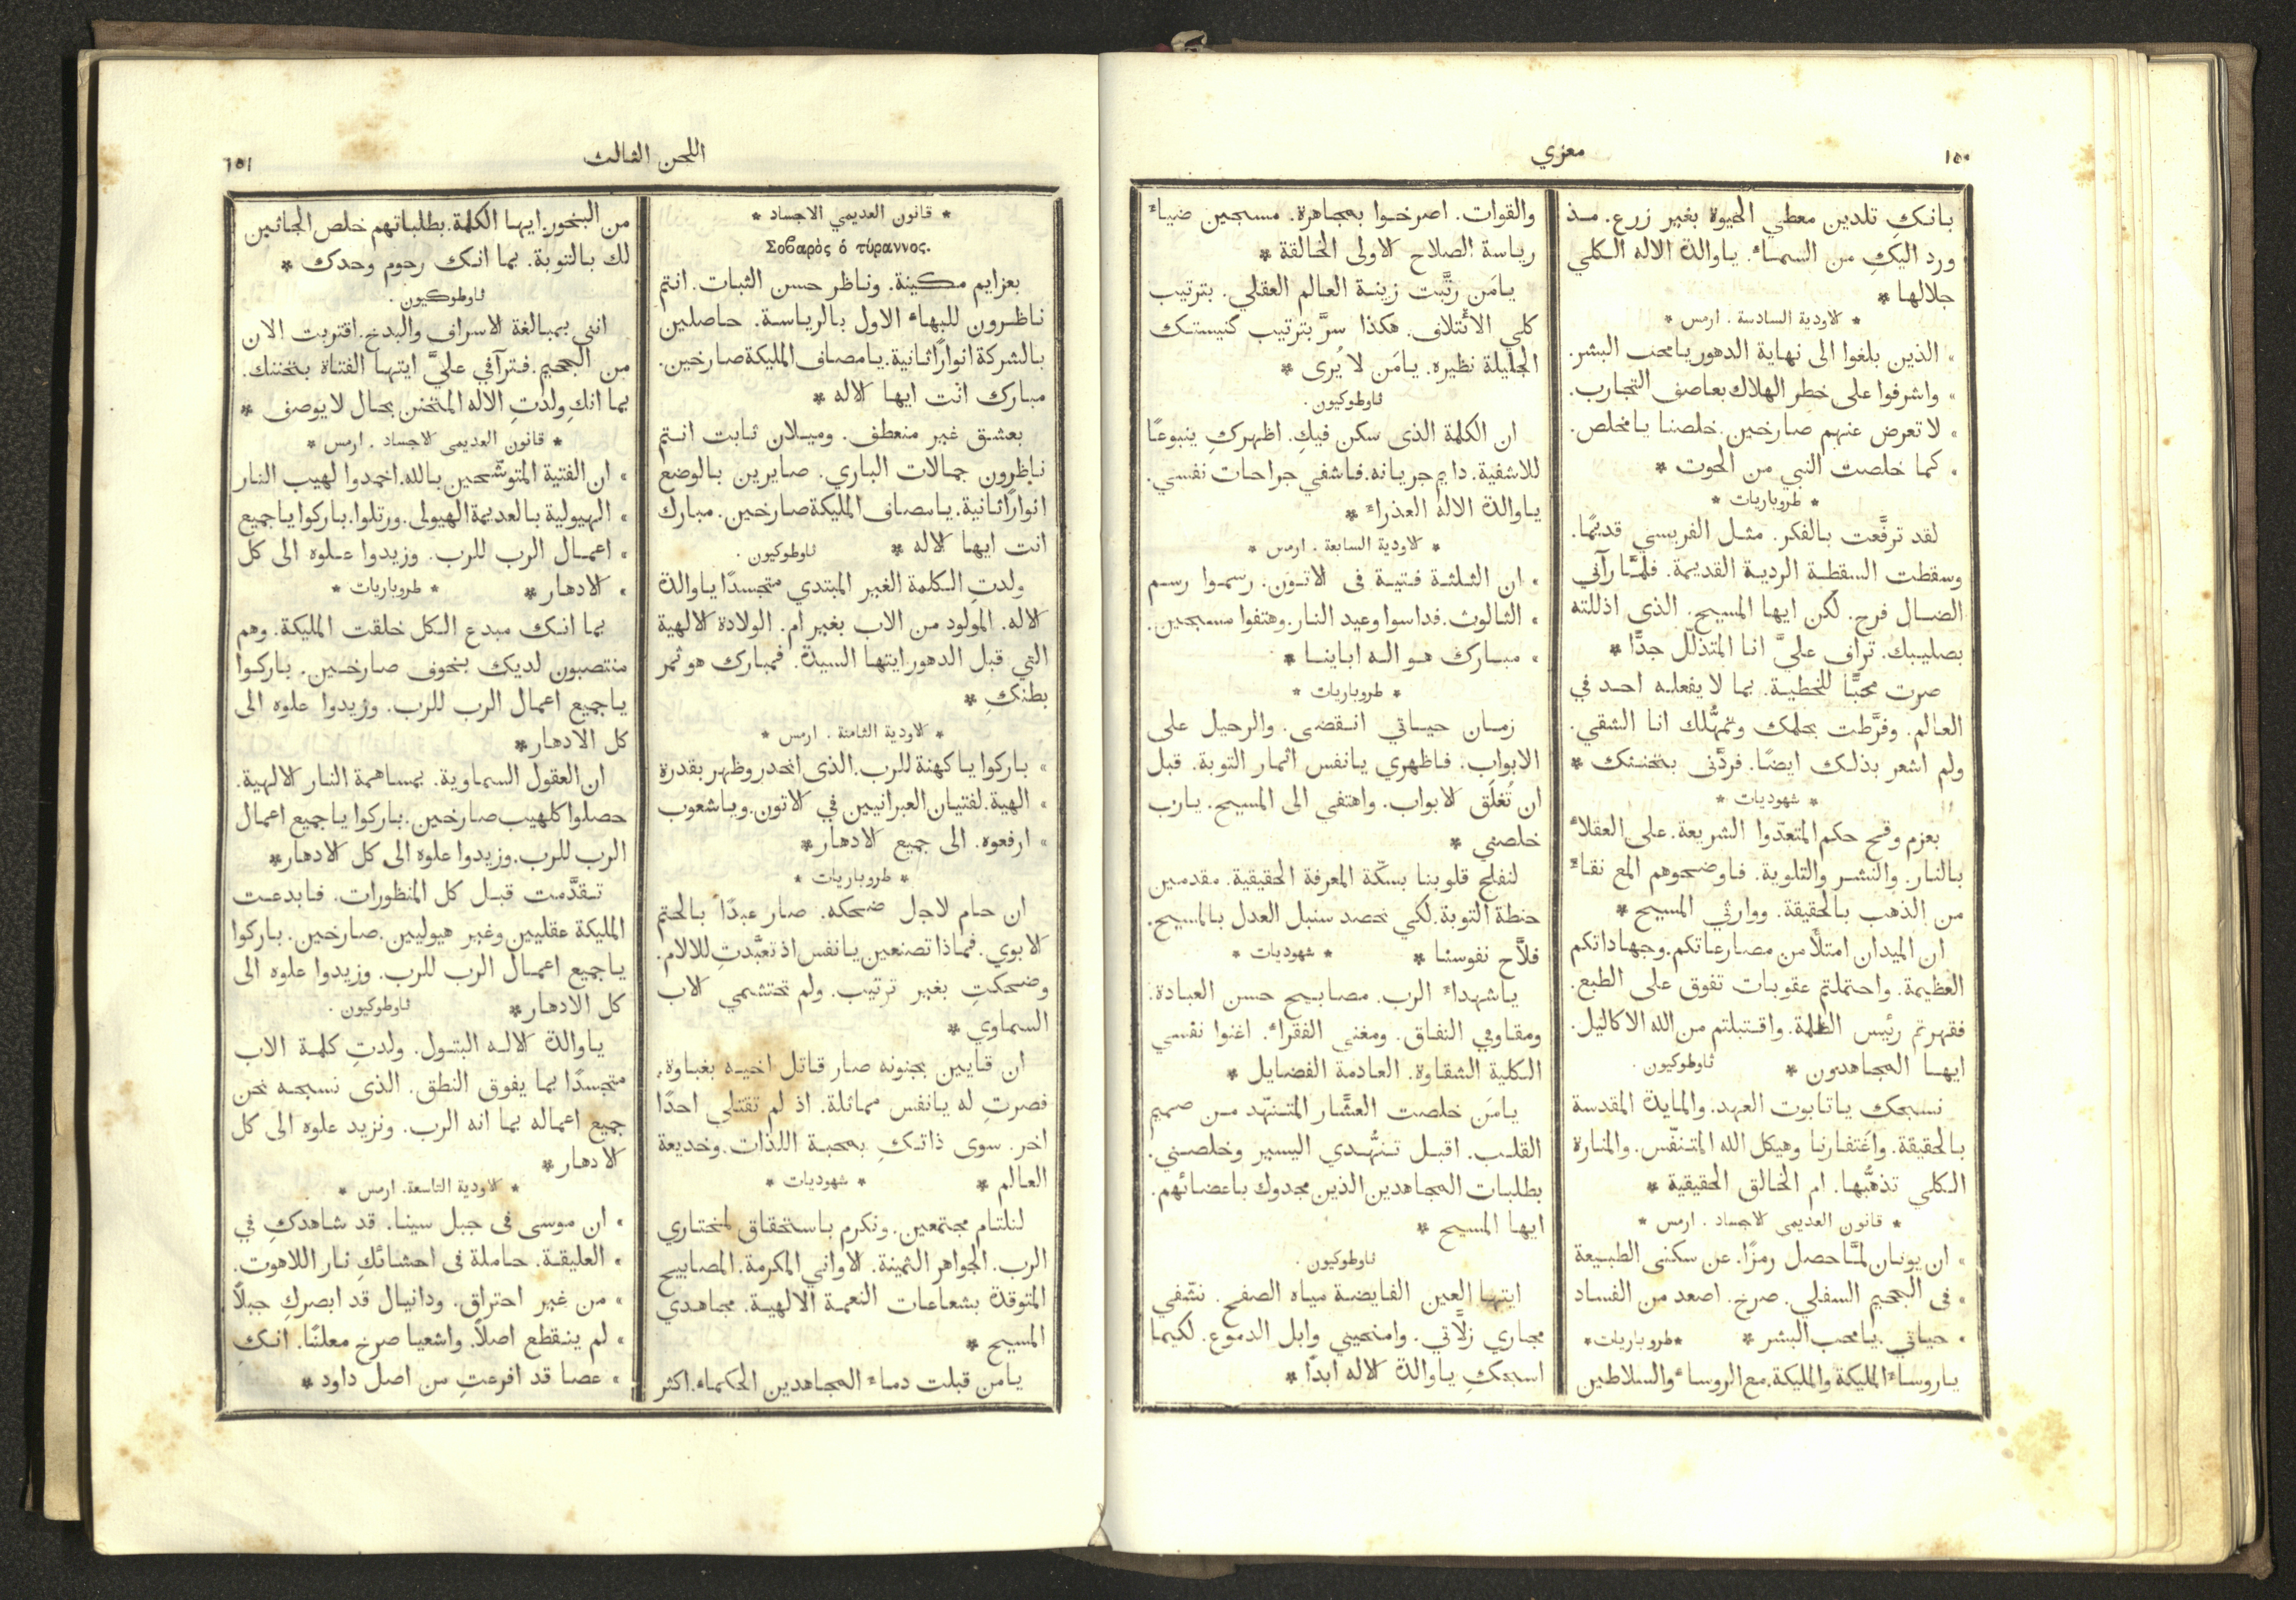 ١٥٠
معزي
بانكِ تلدين معطي الحيوة بغير زرع. مـذ
ورد اليكِ من السماء. ياوالدة الاله الكلي
جلالها *
* الاودية السادسة . ارمس *
» الذين بلغوا الى نهاية الدهور يامحب البشر.
» واشرفوا على خطر الهلاك بعاصف التجارب.
» لا تعرض عنهم صارخين. خلصنا يا مخلص.
» كما خلصت النبي من الحوت *
* طروباريات *
لقد ترفَّعت بالفكر. مثل الفريسي قديمًا.
وسقطت السقطة الردية القديمة. فلمَّا رآني
الضال فرح. لكن ايها المسيح. الذى اذللته
بصليبك. تراف عليَّ انا المتذلّل جدًّا *
صرت محبًّا للخطية. بما لا يفعله احد في
العالم. وفرَّطت بحلمك وتمهُّلك انا الشقي.
ولم اشعر بذلك ايضًا. فردَّنى بتحننك *
* شهوديات *
بعزم وقح حكم المتعدّوا الشريعة. على العقلاء
بالنار. والنشر والتلوية. فاوضحوهم المع نقاءً
من الذهب بالحقيقة. ووارثي المسيح *
ان الميدان امتلأ من مصارعاتكم. وجهاداتكم
العظيمة. واحتملتم عقوبات تفوق على الطبع.
فقهرتم رئيس الظلمة. واقتبلتم من الله الاكاليل.
ايها المجاهدون * ثاوطوكيون .
نسبحك ياتابوت العهد. والمايدة المقدسة
بالحقيقة. واغتفارنا وهيكل الله المتنفّس. والمنارة
الكلي تذهُّبها. ام الخالق الحقيقية *
* قانون العديمى الاجساد . ارمس *
» ان يونان لمَّا حصل رمزًا. عن سكنى الطبيعة
» فى الجحيم السفلي. صرخ. اصعد من الفساد
» حياتي. يا محب البشر * * طروباريات *
ياروساء المليكة والمليكة. مع الروساء والسلاطين
والقوات. اصرخوا بمجاهرة. مسبحين ضياءً
رياسة الصلاح الاولى الخالقة *
يامَن رتَّبت زينة العالم العقلي. بترتيب
كلي الائتلاف. هكذا سرَّ بترتيب كنيستك
الجليلة نظيره. يامَن لا يُرى *
ثاوطوكيون .
ان الكلمة الذى سكن فيكِ. اظهركِ ينبوعًا
للاشفية. دايم جريانه. فاشفي جراحات نفسي.
ياوالدة الاله العذراء *
* الاودية السابعة . ارمس *
» ان الثلثة فتية فى الاتون. رسموا رسم
» الثالوث. فداسوا وعيد النار. وهتفوا مسبحين.
» مبارك هو اله اباينا *
* طروباريات *
زمان حياتي انقضى. والرحيل على
الابواب. فاظهري يانفس اثمار التوبة. قبل
ان تُغلَق الابواب. واهتفي الى المسيح. يارب
خلصني *
لنفلح قلوبنا بسكّة المعرفة الحقيقية. مقدمين
حنطة التوبة. لكي نحصد سنبل العدل بالمسيح.
فلاَّح نفوسنا * * شهوديات *
ياشهداء الرب. مصابيح حسن العبادة.
ومقاومي النفاق. ومغنى الفقراء. اغنوا نفسي
الكلية الشقاوة. العادمة الفضايل *
يامَن خلصت العشَّار المتنهّد من صميم
القلب. اقبل تنهُّدي اليسير وخلصني.
بطلبات المجاهدين الذين مجدوك باعضائهم.
ايها المسيح *
ثاوطوكيون .
ايتها العين الفايضة مياه الصفح. نشّفي
مجاري زلاَّتي. وامنحيني وابل الدموع. لكيما
اسبحكِ ياوالدة الاله ابدًا *
اللحن الثالث
١٥١
* قانون العديمي الاجساد *
Σοβαρὸς ὁ τύραννος.
بعزايم مكينة. وناظر حسن الثبات. انتم
ناظرون للبهاء الاول بالرياسة. حاصلين
بالشركة انوارًا ثانية. يامصاف المليكة صارخين.
مبارك انت ايها الاله *
بعشق غير منعطف. وميلان ثابت انتم
ناظرون جمالات الباري. صايرين بالوضع
انوارًا ثانية. يامصاف المليكة صارخين. مبارك
انت ايها الاله * ثاوطوكيون .
ولدتِ الكلمة الغير المبتدي متجسدًا ياوالدة
الاله. المولود من الاب بغير ام. الولادة الالهية
التي قبل الدهور ايتها السيدة. فمبارك هو ثمر
بطنكِ *
* الاودية الثامنة . ارمس *
» باركوا ياكهنة للرب. الذى انحدر وظهر بقدرة
» الهية. لفتيان العبرانيين في الاتون. وياشعوب
» ارفعوه. الى جميع الادهار *
* طروباريات *
ان حام لاجل ضحكه. صار عبدًا بالحتم
الابوي. فماذا تصنعين يانفس اذ تعبَّدتِ للالام.
وضحكتِ بغير ترتيب. ولم تحتشمي الاب
السماوي *
ان قايين بجنونه صار قاتل اخيه بغباوة.
فصرتِ له يانفس مماثلة. اذ لم تقتلي احدًا
اخر. سوى ذاتكِ بمحبة اللذات. وخديعة
العالم * * شهوديات *
لنلتام مجتمعين. ونكرم باستحقاق لمختاري
الرب. الجواهر الثمينة. الاواني المكرمة. المصابيح
المتوقدة بشعاعات النعمة الالهية. مجاهدي
المسيح *
يامن قبلت دماء المجاهدين الحكماء. اكثر
من البخور. ايها الكلمة. بطلباتهم خلص الجاثين
لك بالتوبة. بما انك رحوم وحدك *
ثاوطوكيون .
اننى بمبالغة الاسراف والبذخ. اقتربت الان
من الجحيم. فترآفي عليَّ ايتها الفتاة بتحننك.
بما انكِ ولدتِ الاله المتحنن بحال لا يوصف *
* قانون العديمى الاجساد . ارمس *
» ان الفتية المتوشّحين بالله. اخمدوا لهيب النار
» الهيولية بالعديمة الهيولى. ورتلوا. باركوا ياجميع
» اعمال الرب للرب. وزيدوا علوه الى كل
» الادهار * * طروباريات *
بما انك مبدع الكل خلقت المليكة. وهم
منتصبون لديك بخوف صارخين. باركوا
ياجميع اعمال الرب للرب. وزيدوا علوه الى
كل الادهار *
ان العقول السماوية. بمساهمة النار الالهية.
حصلوا كلهيب صارخين. باركوا ياجميع اعمال
الرب للرب. وزيدوا علوه الى كل الادهار *
تقدَّمت قبل كل المنظورات. فابدعت
المليكة عقليين وغير هيوليين. صارخين. باركوا
ياجميع اعمال الرب للرب. وزيدوا علوه الى
كل الادهار * ثاوطوكيون .
ياوالدة الاله البتول. ولدتِ كلمة الاب
متجسدًا بما يفوق النطق. الذى نسبحه نحن
جميع اعماله بما انه الرب. ونزيد علوه الى كل
الادهار *
* الاودية التاسعة. ارمس *
» ان موسى فى جبل سينا. قد شاهدكِ في
» العليقة. حاملة فى احشائكِ نار اللاهوت.
» من غير احتراق. ودانيال قد ابصركِ جبلاً
» لم ينقطع اصلاً. واشعيا صرخ معلنًا. انكِ
» عصا قد افرعتِ من اصل داود *